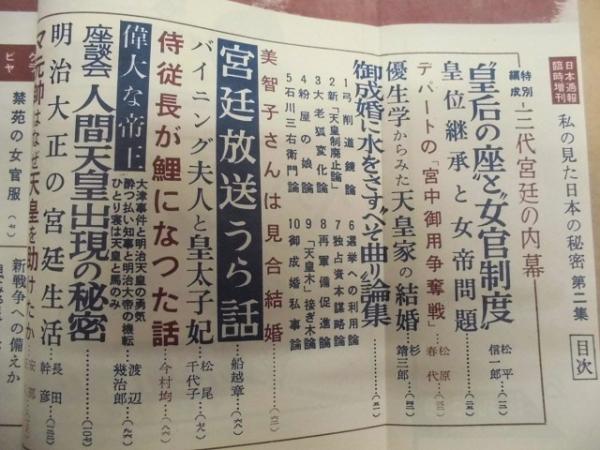 日本週報
臨時増刊
私の見た日本の秘密 第二集
目次
特別
編成
三代宮廷の内幕
"皇后の座"と"女官制度"
松平信一郎…(一二)
皇位継承と女帝問題
デパートの「宮中御用争奪戦」
松原春代
優生学からみた天皇家の結婚
杉靖三郎
御成婚に水をさす"へそ曲り論集
1 弓削道鏡論
2 新「天皇制廃止論」
3 大老狐変化論
4 粉屋の娘論
5 石川三右衛門論
6 選挙への利用論
7 独占資本謀略論
8 再軍備促進論
9 「天皇木」接ぎ木論
10 御成婚私事論
美智子さんは見合結婚
宮廷放送うら話
船越章…(六八)
バイニング夫人と皇太子妃
松尾千代子…(七六)
侍従長が鯉になつた話
今村均
偉大な帝王
大津事件と明治天皇の勇気
酔つ払い知事と明治大帝の機転
ひとり寝は天皇と馬のみ
渡辺幾治郎…(九六)
座談会
人間天皇出現の秘密
…(10四)
明治大正の宮廷生活
長田幹彦
マ元帥はなぜ天皇を助けたか
禁苑の女官服(七)
新戦争への備えか